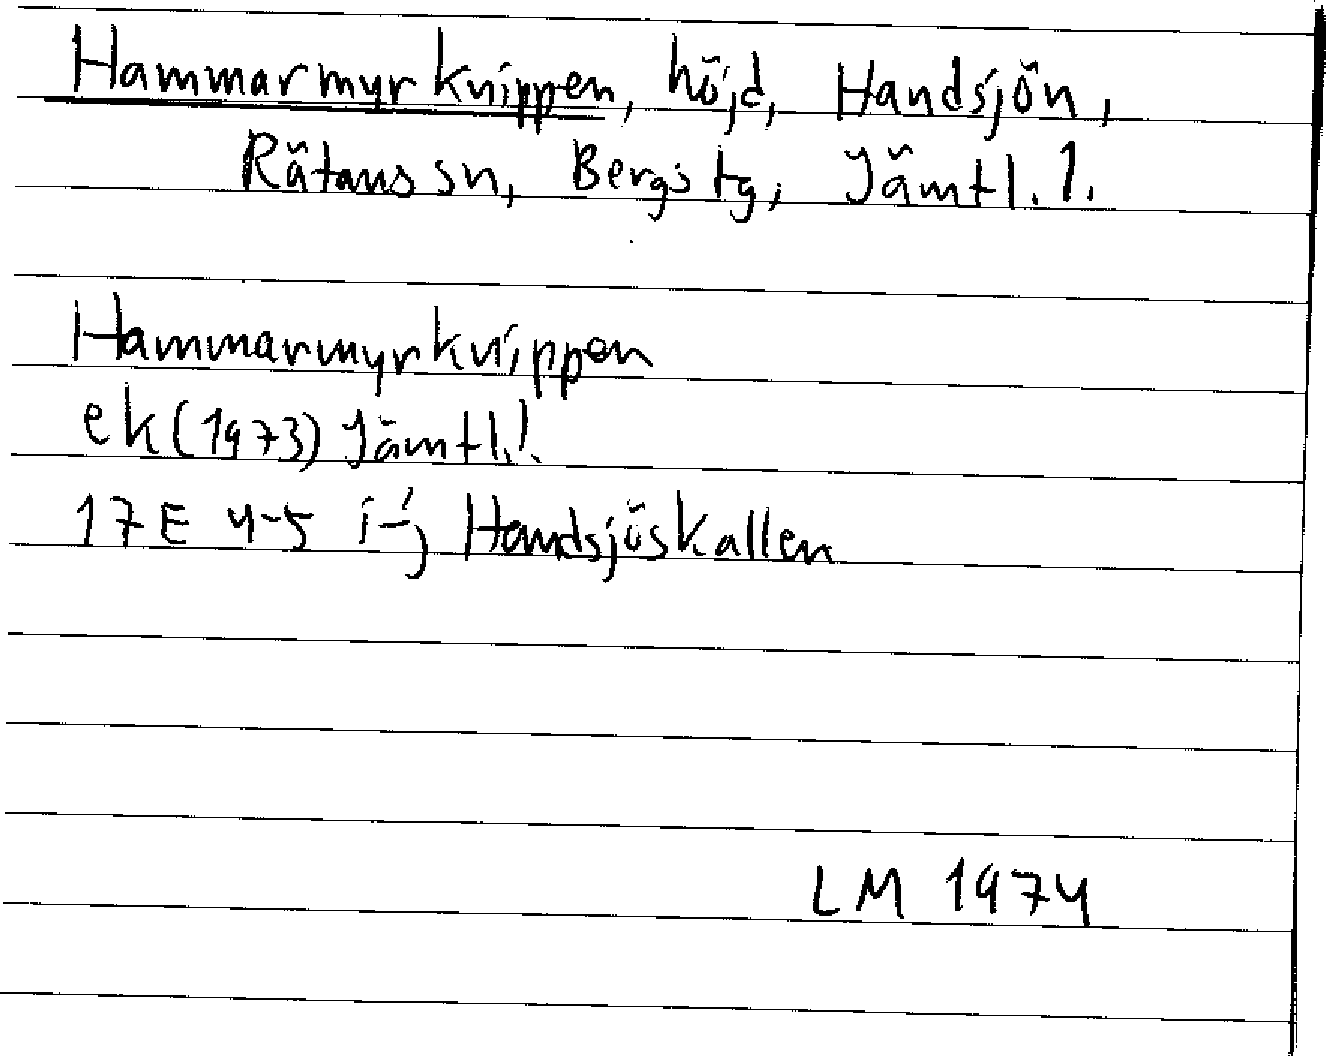 Hammarmyrknippen, höjd, Handsjön,
Rätans sn, Bergs tg, Jämtl. l.
Hammarmyrknippen
ek (1973) Jämtl. l.
17E 4-5 i-j Handsjöskallen
LM 1974